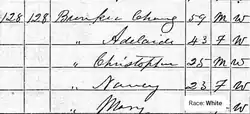 128 128 Chang 59 M W
" Adelaide 43 F W
" Christopher 25 M W
" Nancy 23 F W
" Mary - W
Race: White